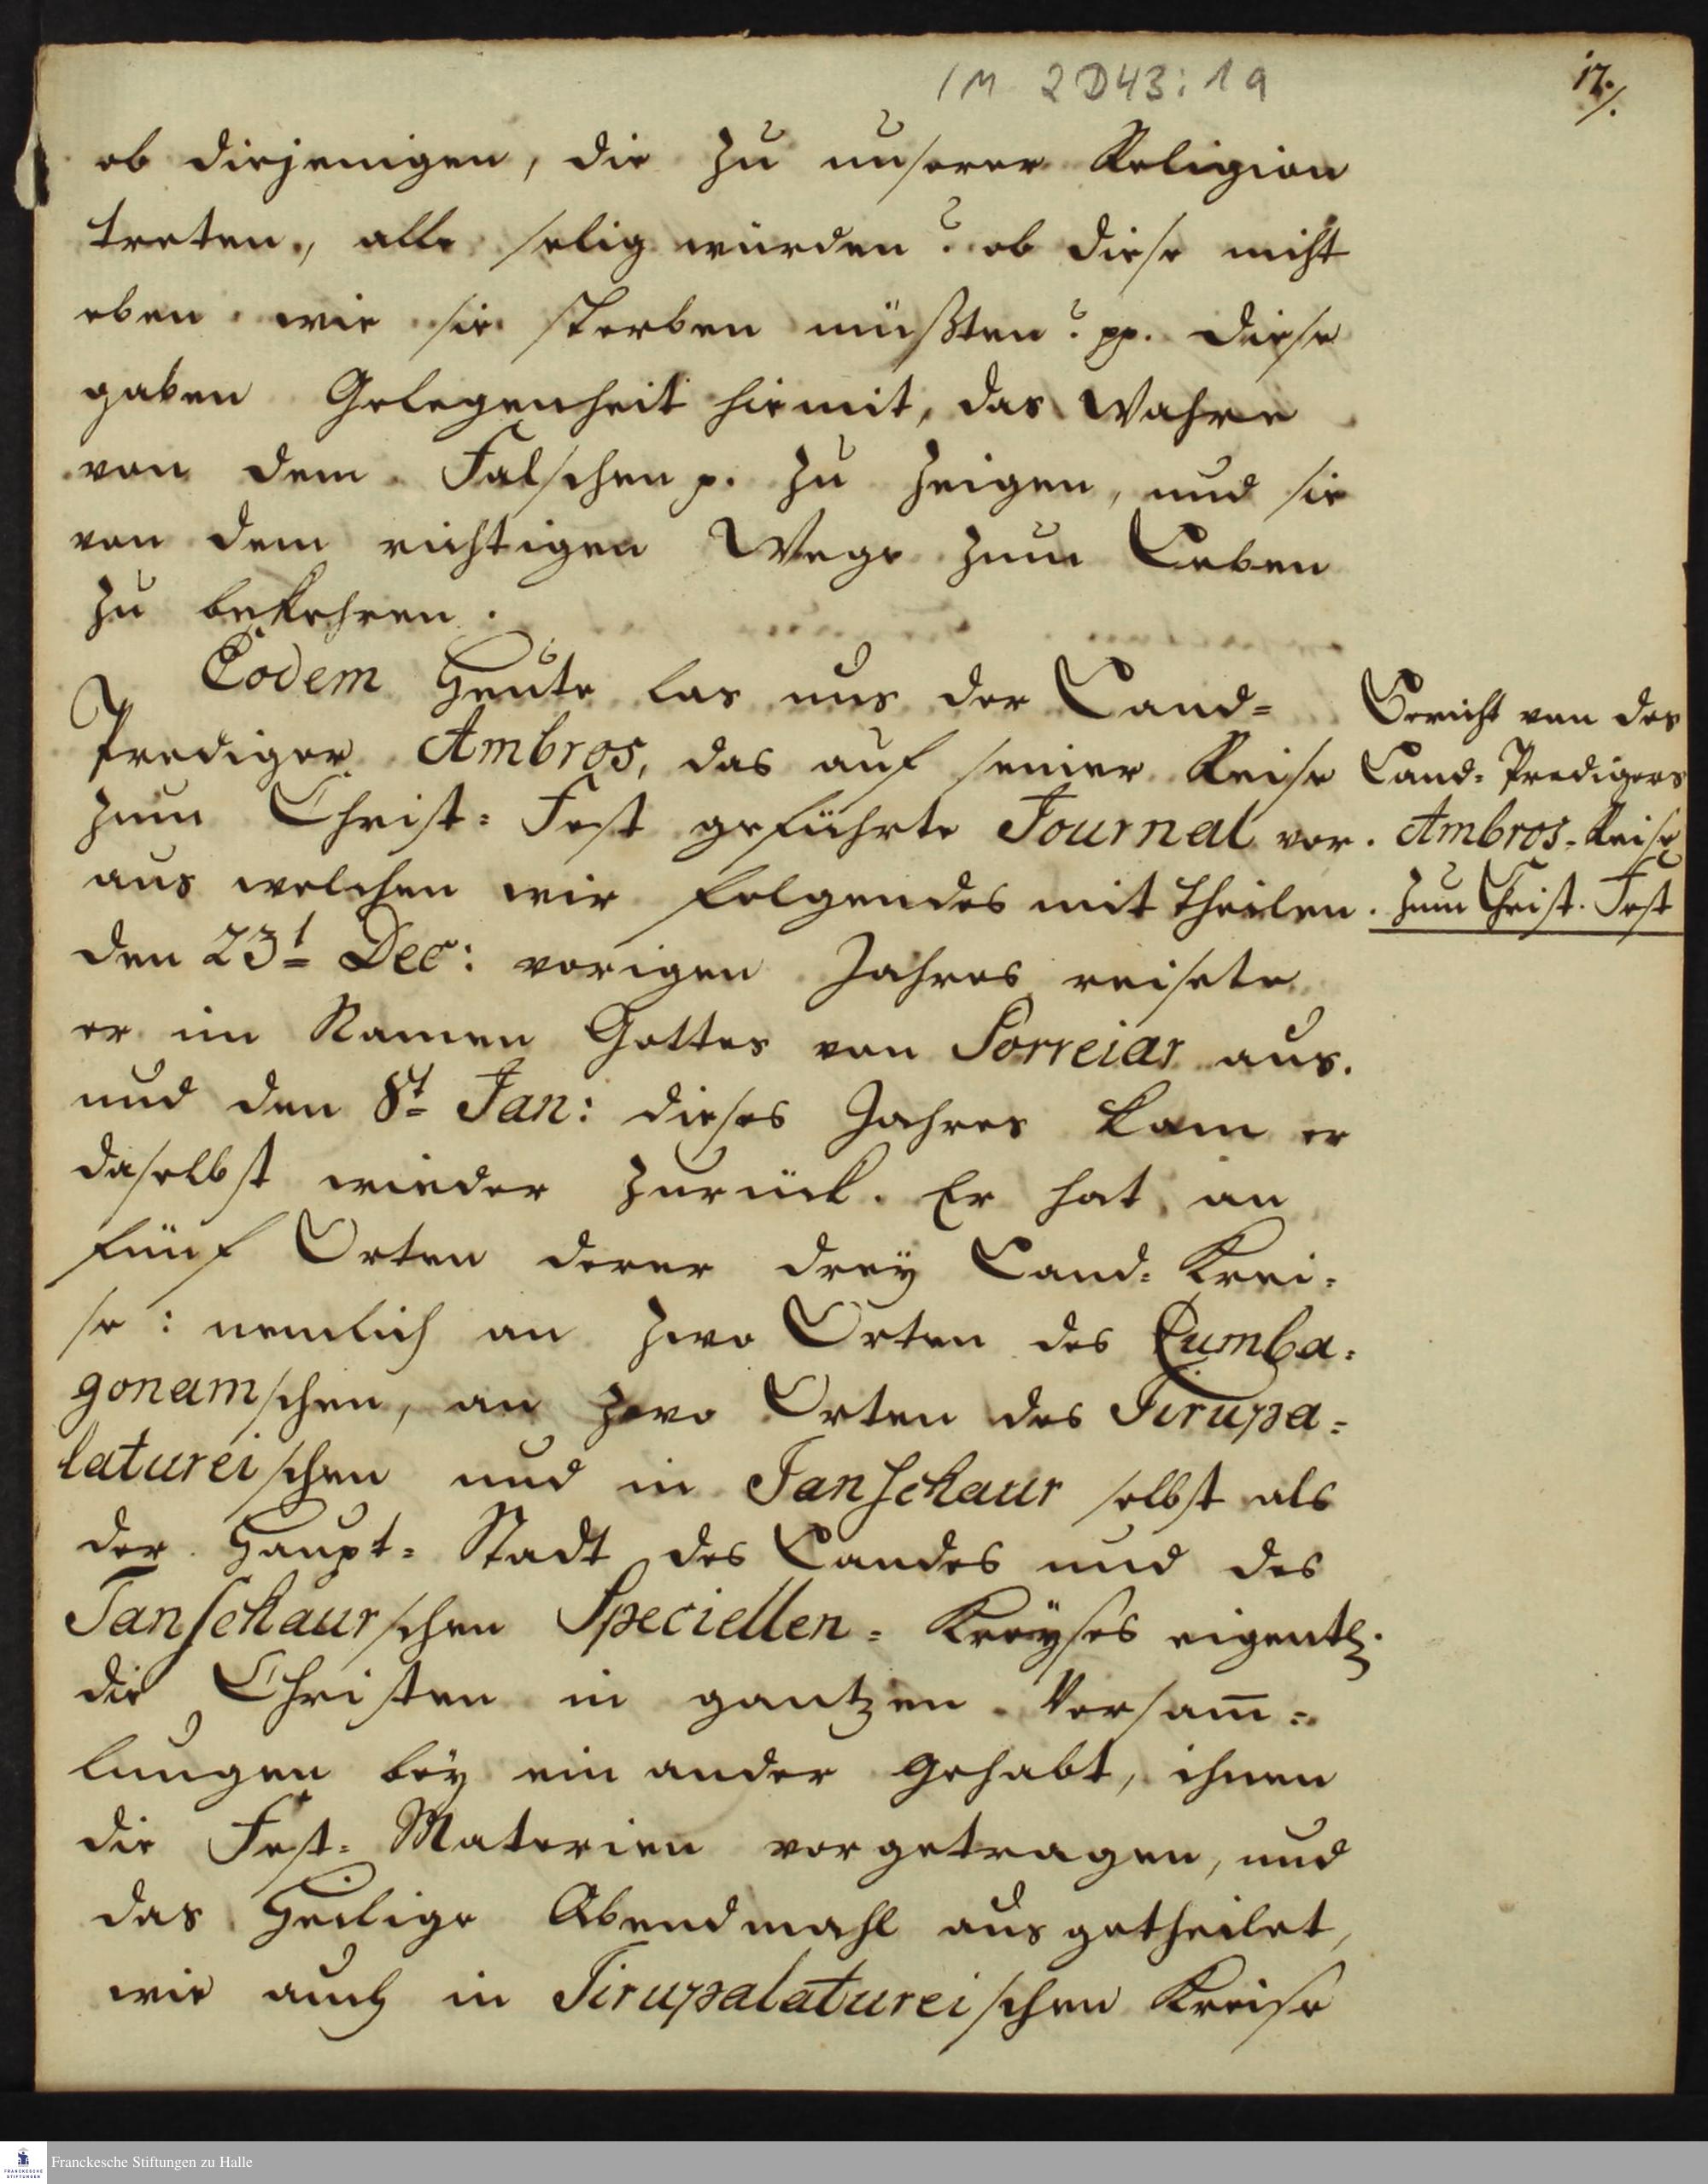 1M 2D43:19
17./.
ob diejenigen, die zu unserer Religion
treten, alle selig würden? ob diese nicht
eben wie sie sterben müßten? pp. diese
gaben Gelegenheit hiemit, das Wahre
von dem Falschen p. zu zeigen, und sie
von dem richtigen Wege zum Leben
zu bekehren.
Eodem Heute las uns der Land-
Prediger Ambros, das auf seiner Reise
zum Christ-Fest geführte Journal vor.
aus welchen wir folgendes mit theilen.
Bericht von des
Land-Predigers
Ambros-Reise
zum Christ-Fest
den 23t Dec: vorigen Jahres reisete
er im Namen Gottes von Porreiar aus.
und den 8t Jan: dieses Jahres kam er
daselbst wieder zurück. Er hat an
fünf Orten derer drey Land-Krei-
se: nemlich an zwo Orten des Cumba-
gonamschen, an zwo Orten des Tirupa-
latureischen und in Tanschaur selbst als
der Haupt-Stadt des Landes und des
Tanschaurschen Speciellen-Kreyses eigentl.
die Christen in gantzen Versam̅-
lungen bey ein ander gehabt, ihnen
die Fest-Materien vorgetragen, und
das Heilige Abendmahl ausgetheilet,
wie auch in Tirupalatureischen Kreise
Franckesche Stiftungen zu Halle